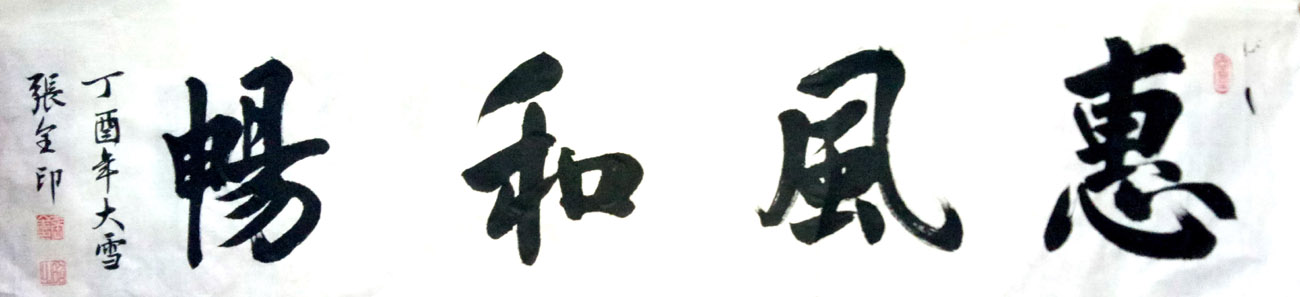 惠風和暢
丁酉年大雪
張全印